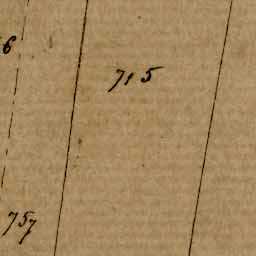 6
715
757